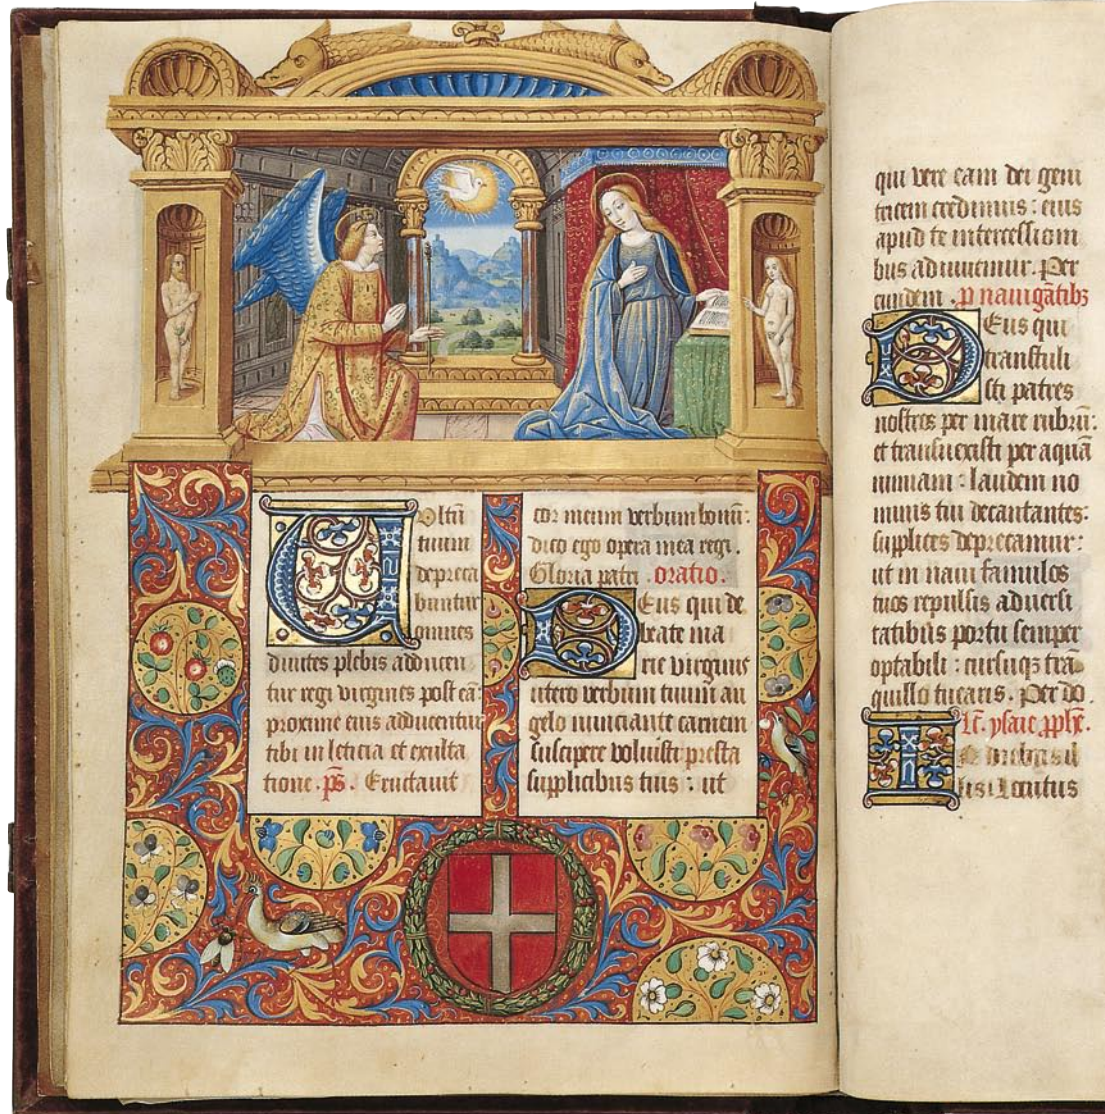 Vltū
tuum
depreca
buntur
omnes
diuites plebis adducen
tur regi virgines post eā:
proxime eius adducentur
tibi in leticia et exulta
tione . ps̄. Eructauit
cor meum verbum bonū:
dico ego opera mea regi .
Gloria patri . oratio.
Deus qui de
beate ma
rie virginis
utero verbum tuum an
gelo nunciante carnem
suscipere voluisti presta
supplicibus tuis : ut
qui vere eam dei geni
tricem credimus : eius
apud te intercessioni
bus adiuuemur. Per
eundem . p nauigātibꝫ
Deus qui
transtuli
sti patres
nostros per mare rubrū:
et transuexisti per aquā
nimiam : laudem no
minis tui decantantes:
supplices deprecamur:
ut in naui famulos
tuos repulsis aduersi
tatibus portu semper
optabili : cursuqꝫ trā
quillo tuearis . Per do.
ysaie pphē.
In diebus il
lis : Locutus